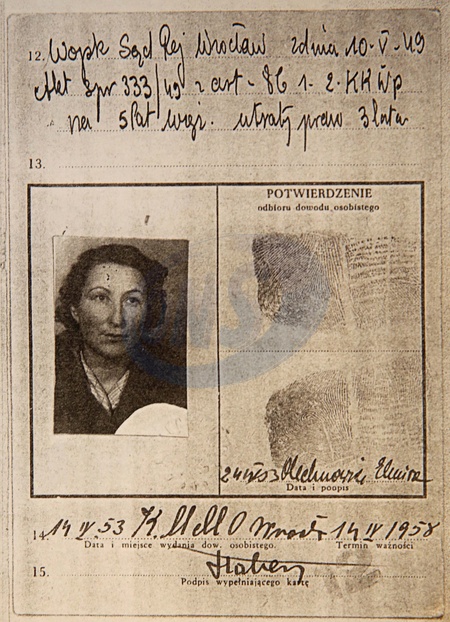 12. Wojsk Sąd Rej Wrocław z dnia 10-V-49
Akt Spr 333/49 z art. 86 1-2 KKWP
na 5 lat więz. utraty praw 3 lata
13.
POTWIERDZENIE
odbioru dowodu osobistego
24 IV 53 Olechnowicz Elwira
Data i podpis
14. 14 IV 53 K M M O Wrocł 14 IV 1958
Data i miejsce wydania dow. osobistego. Termin ważności
15.
Podpis wypełniającego kartę